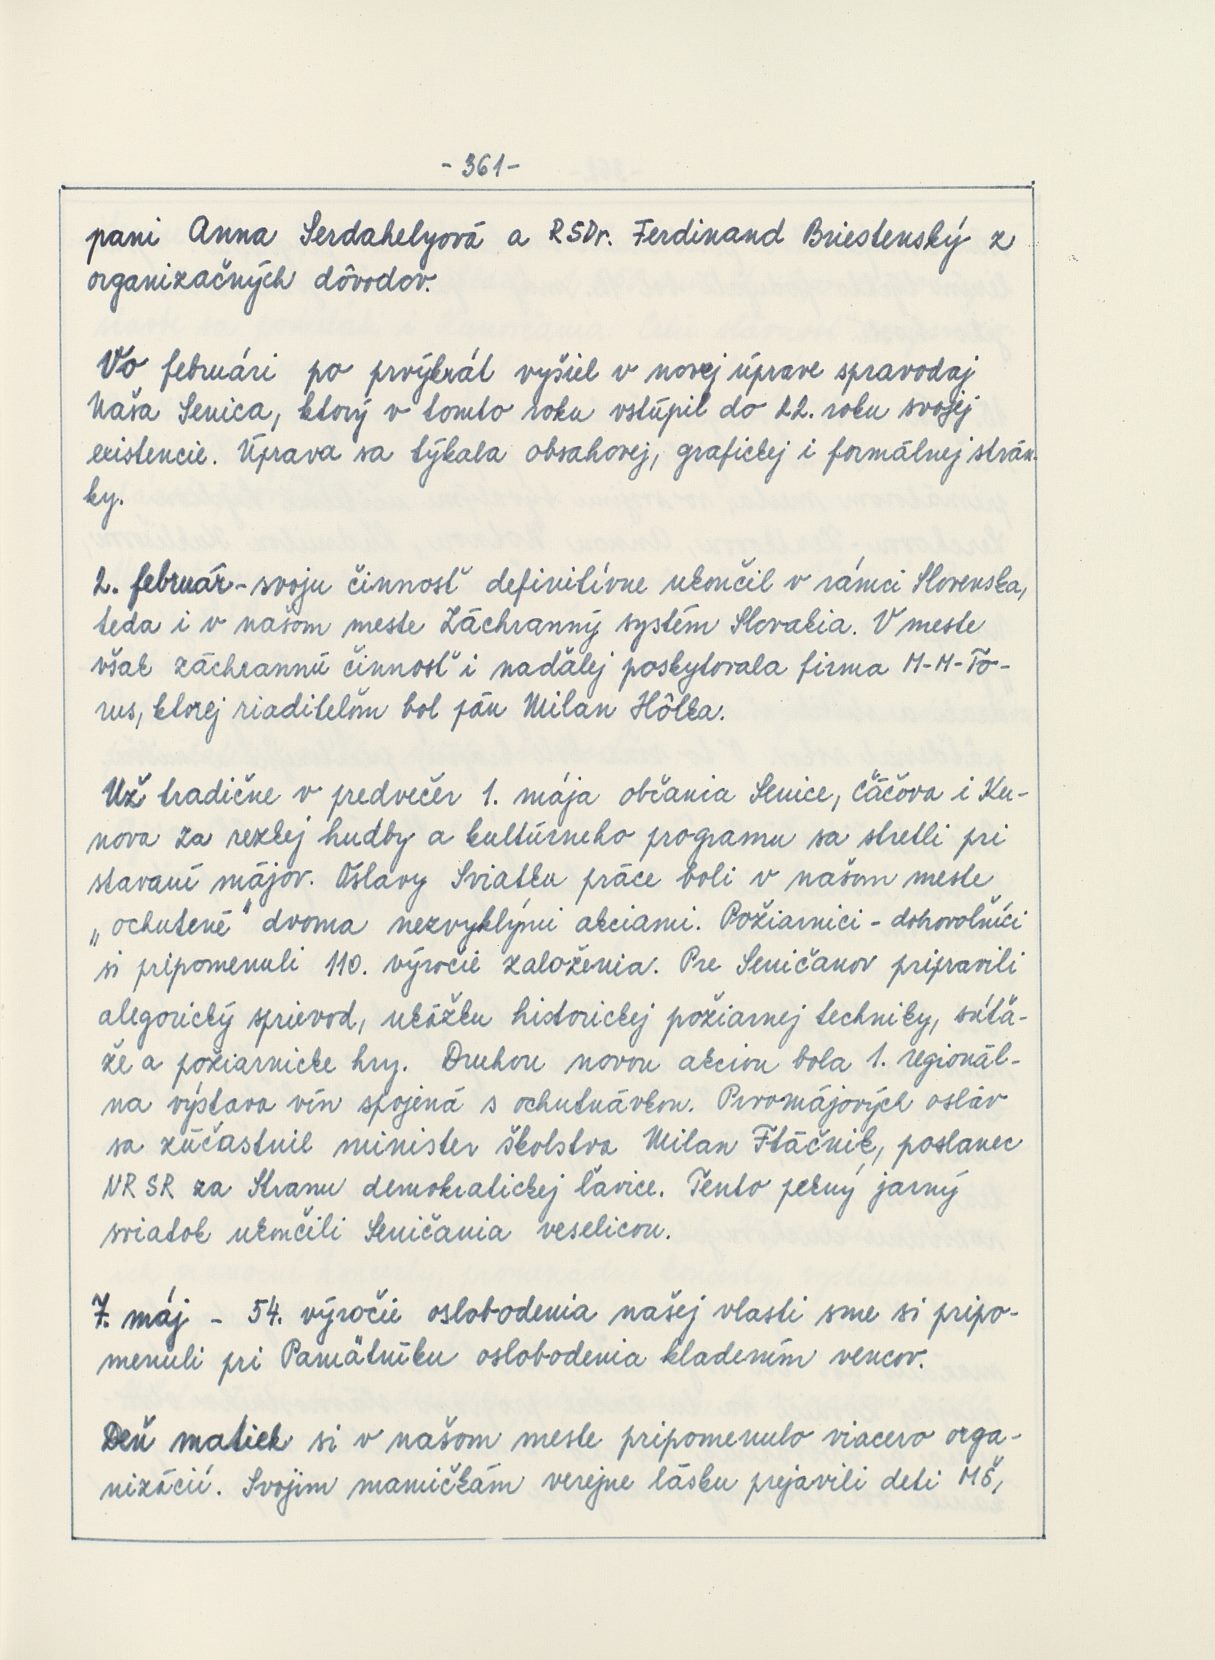 - 361 -
pani Anna Serdahelyová a RSDr. Ferdinand Briestenský z
organizačných dôvodov.
Vo februári po prvýkrát vyšiel v novej úprave spravodaj
Naša Senica, ktorý v tomto roku vstúpil do 22. roku svojej
existencie. Úprava sa týkala obsahovej, grafickej i formálnej strán-
ky.
2. február - svoju činnosť definitívne ukončil v rámci Slovenska,
teda i v našom meste Záchranný systém Slovakia. V meste
však záchrannú činnosť i naďalej poskytovala firma M-M-To-
rus, ktorej riaditeľom bol pán Milan Hôlka.
Už tradične v predvečer 1. mája občania Senice, Čáčova i Ku-
nova za rezkej hudby a kultúrneho programu sa stretli pri
stavaní májov. Oslavy Sviatku práce boli v našom meste
„ochutené" dvoma nezvyklými akciami. Požiarnici - dobrovoľníci
si pripomenuli 110. výročie založenia. Pre Seničanov pripravili
alegorický sprievod, ukážku historickej požiarnej techniky, súťa-
že a požiarnicke hry. Druhou novou akciou bola 1. regionál-
na výstava vín spojená s ochutnávkou. Prvomájových osláv
sa zúčastnil minister školstva Milan Ftáčnik, poslanec
NR SR za Stranu demokratickej ľavice. Tento pekný jarný
sviatok ukončili Seničania veselicou.
7. máj - 54. výročie oslobodenia našej vlasti sme si pripo-
menuli pri Pamätníku oslobodenia kladením vencov.
Deň matiek si v našom meste pripomenulo viacero orga-
nizácií. Svojim mamičkám verejne lásku prejavili deti MŠ,